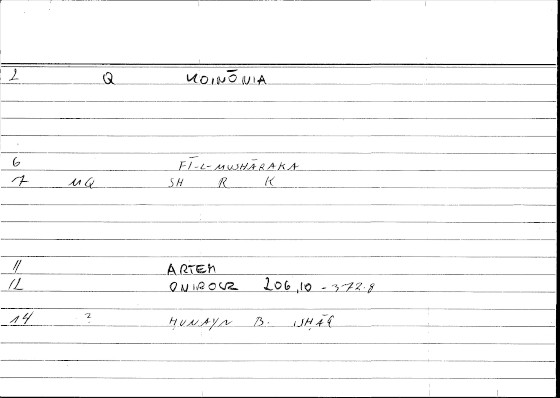 2 Q KOINŌNIA
6 FĪ-L-MUSHĀRAKA
7 MQ SH R K
11 ARTEM
12 ONIROCR 206,10 - 372.8
14 ? ḤUNAYN B. ISḤĀQ